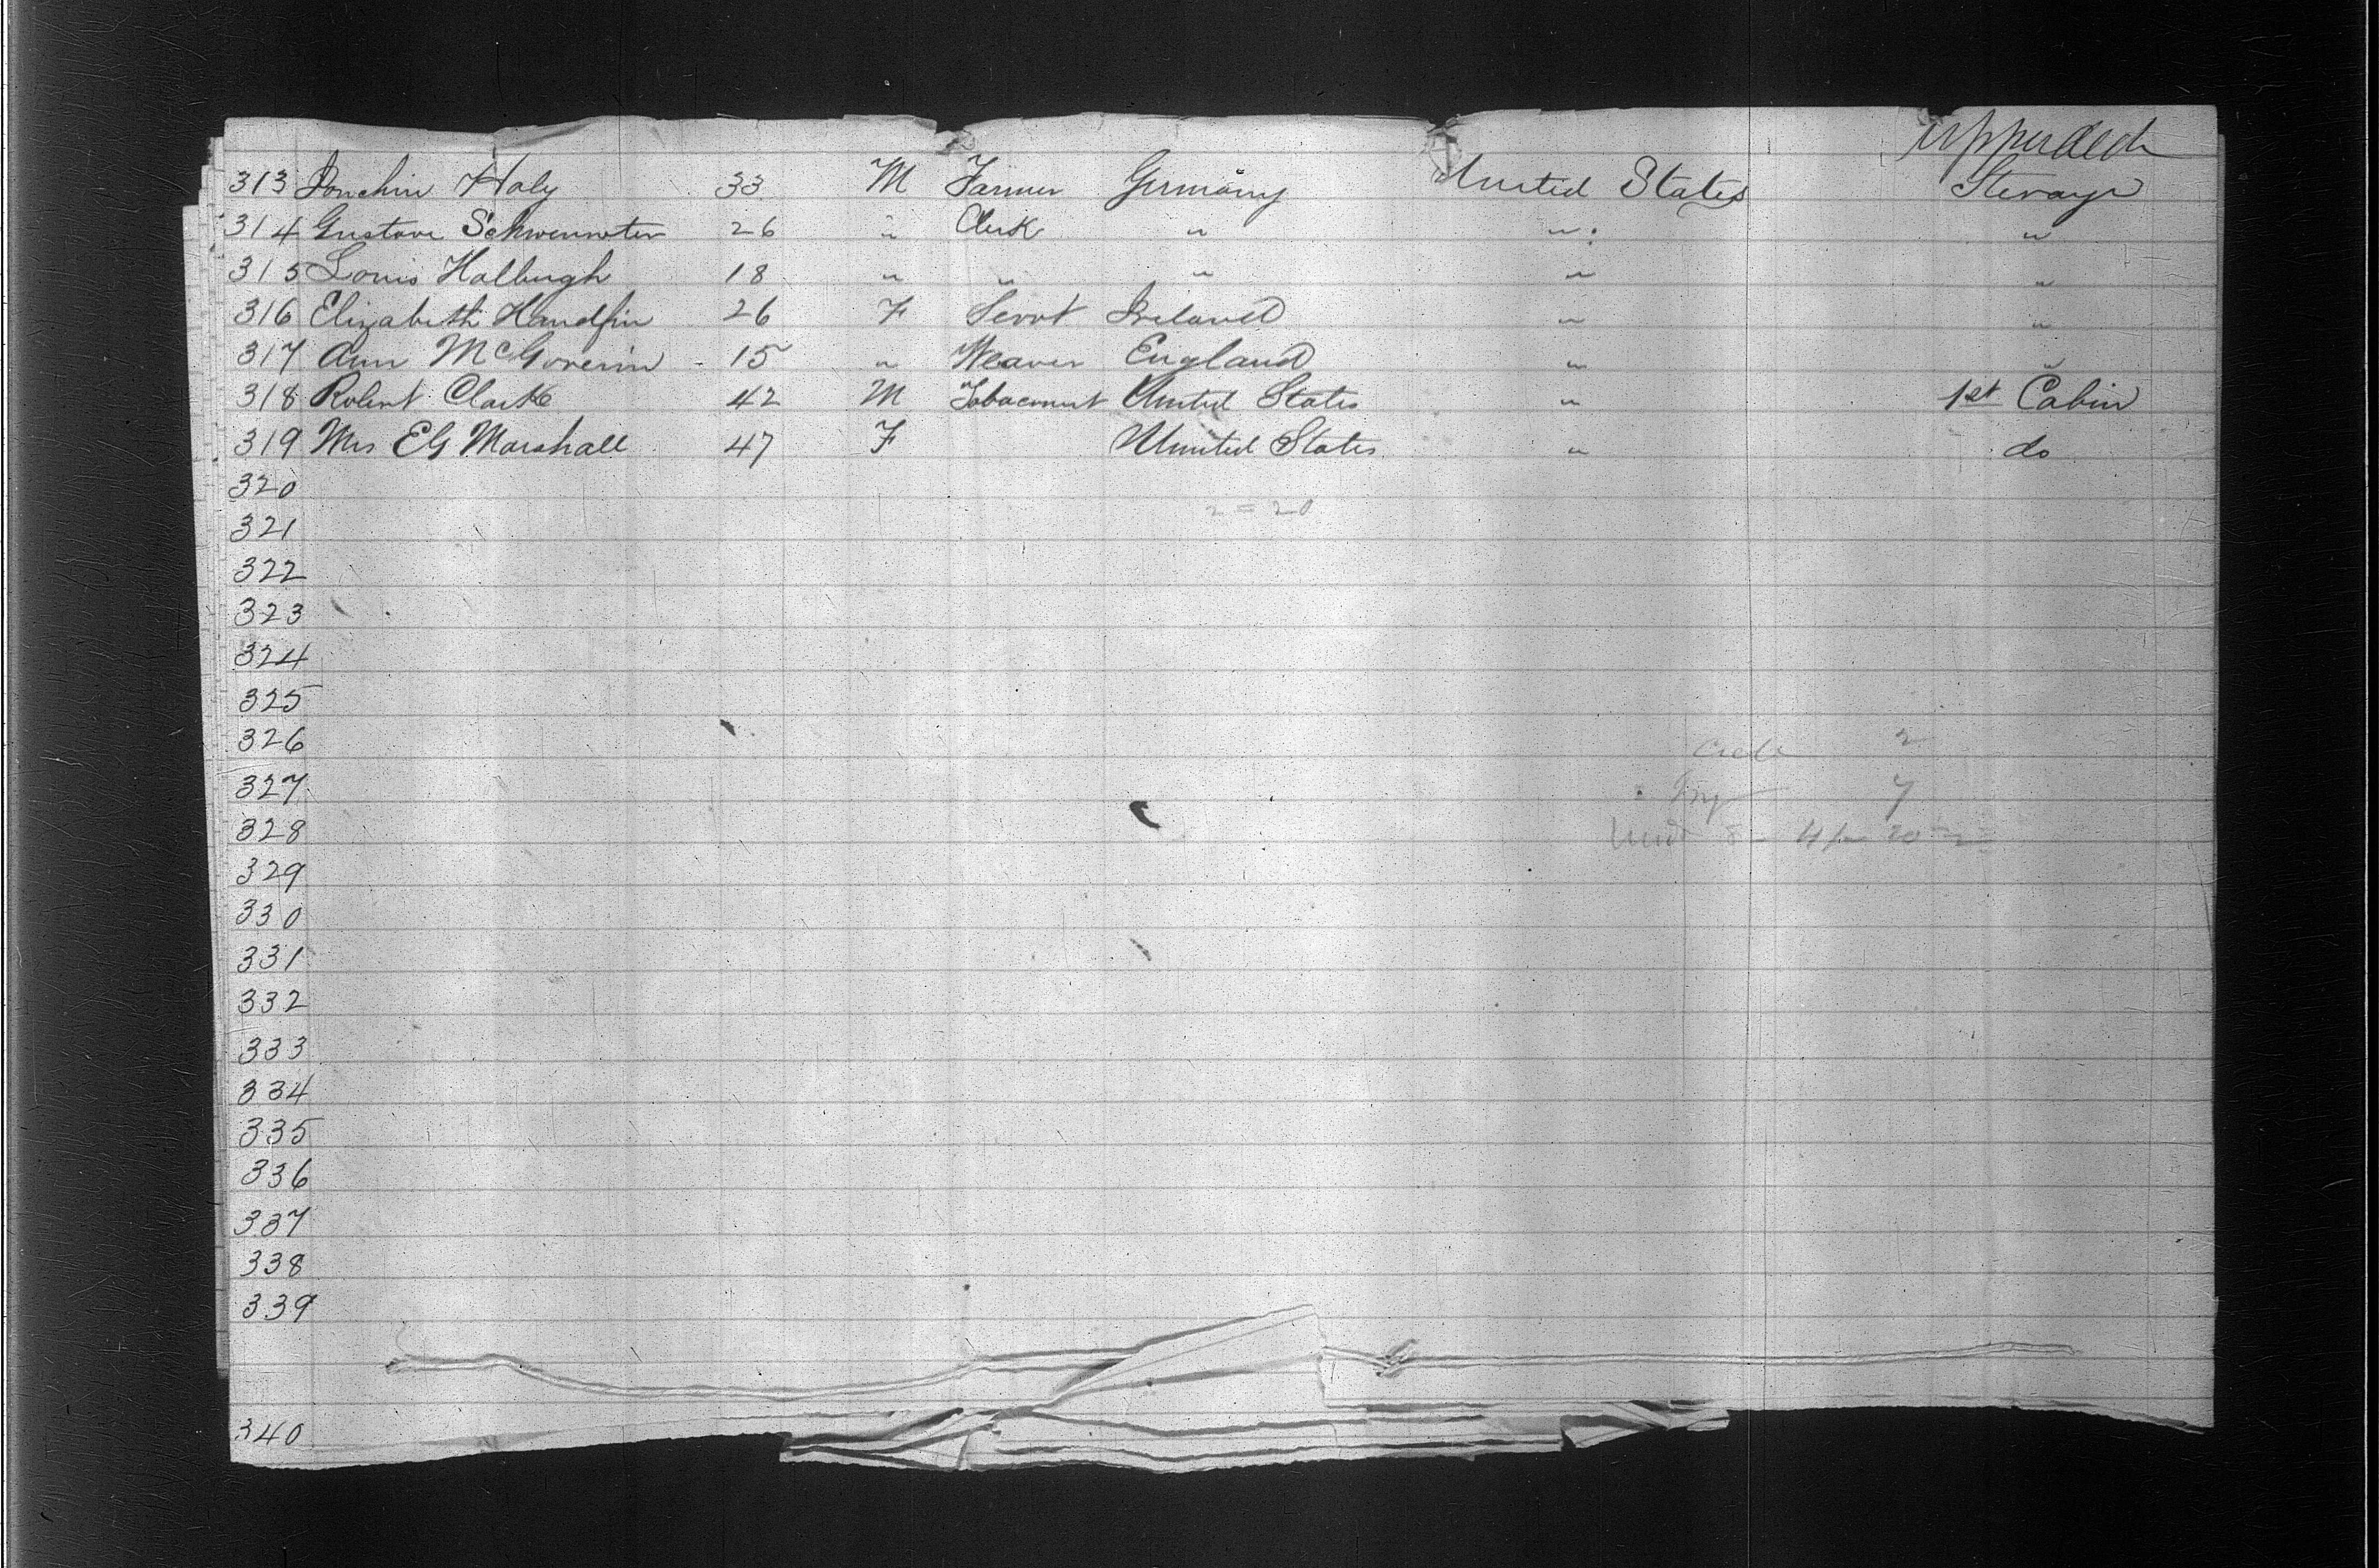 upperdeck
313 Jonchin Haly 33 M Farmer Germany United States Sterage
314 Gustave 26 " Clerk " " "
315 Louis Halbugh 18 " " " " "
316 Elizabeth Handfin 26 F Servt Ireland " "
317 Ann McGoverin 15 " Weaver England " "
318 Robert Clark 42 M Tobaconist United States " 1st Cabin
319 Mrs EG Marshall 47 F United States " do
320
2 = 20
321
322
323
324
325
326 2
327 7
328 8
329
330
331
332
333
334
335
336
337
338
339
340